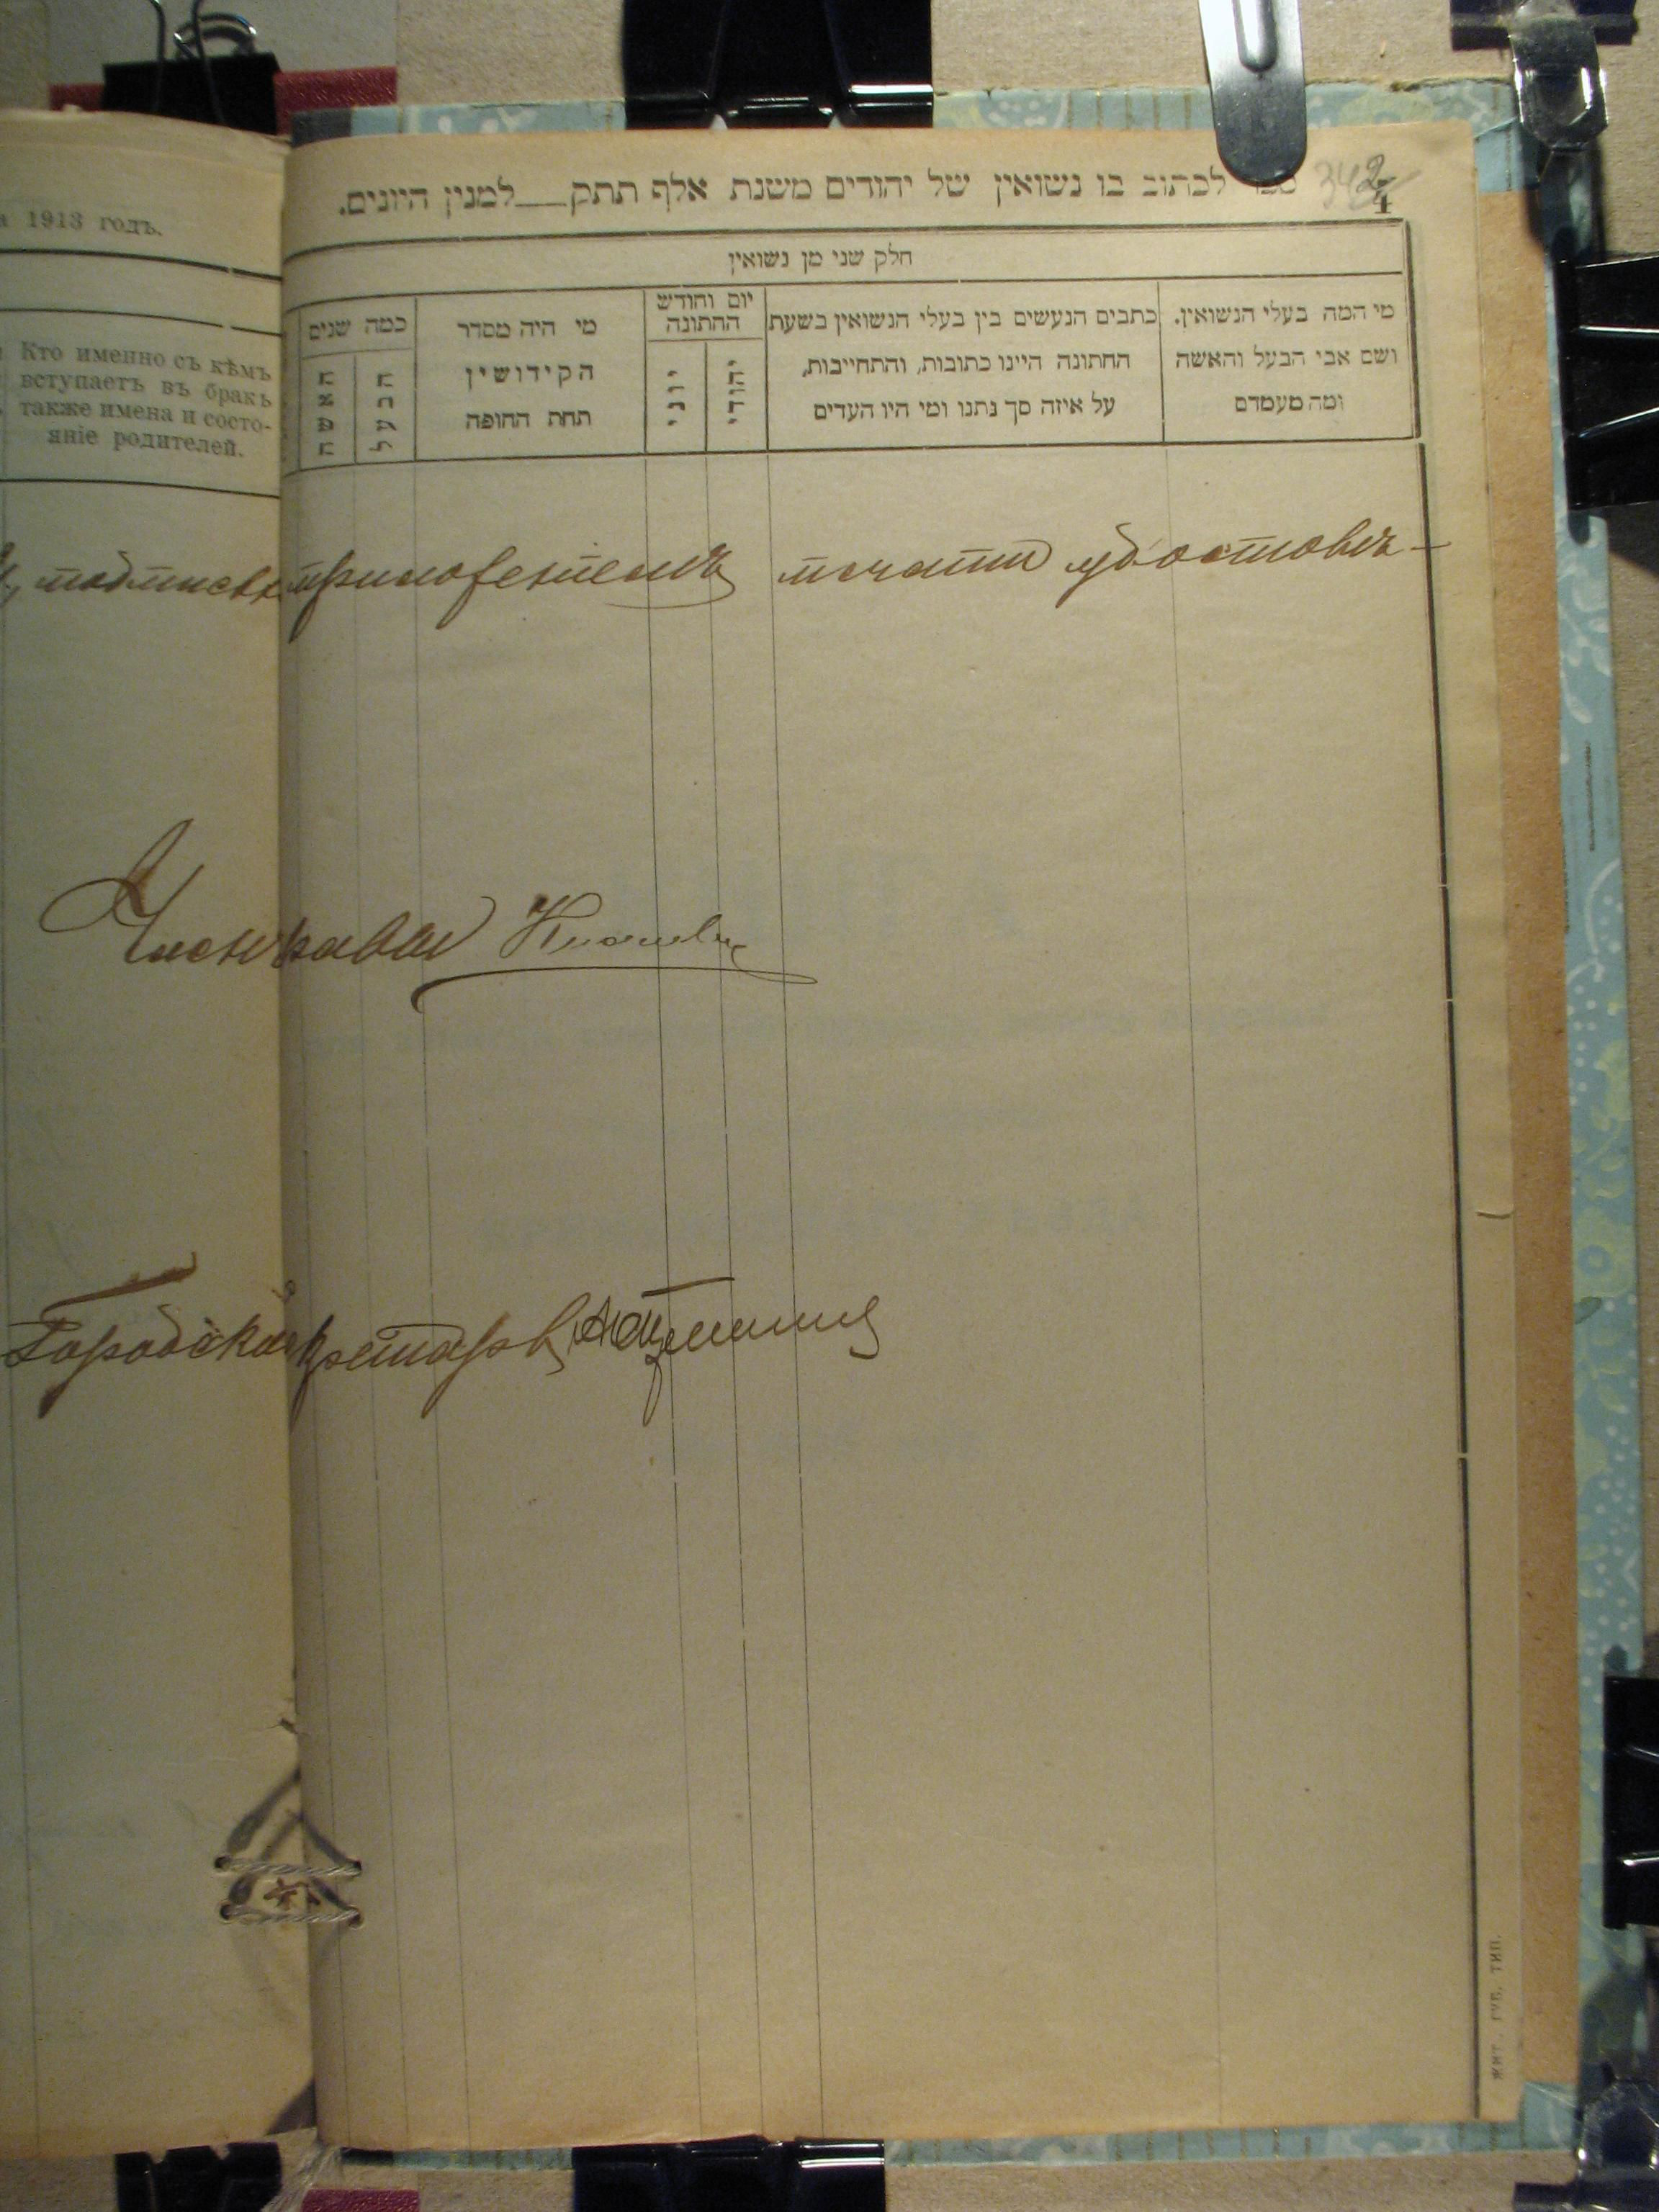 а 1913 годъ.
Кто именно съ кѣмъ
вступаетъ въ бракъ
также имена и состо-
яніе родителей.
לכתוב בו נשואין של יהודים משנת אלף תתק___למנין היונים.
342
4
חלק שני מן נשואין
מי המה בעלי הנשואין.
ושם אבי הבעל והאשה
ומה מעמדם
כתבים הנעשים בין בעלי הנשואין בשעת
החתונה היינו כתובות, והתחייבות,
על איזה סך נתנו ומי היו העדים
יום וחודש
החתונה
יהודי
יוני
מי היה מסדר
הקידושין
תחת החופה
כמה שנים
הבעל
האשה
приложеніемъ печати удостовѣ-
Членъ
Городской Секретарь
ЖИТ. ГУБ. ТИП.